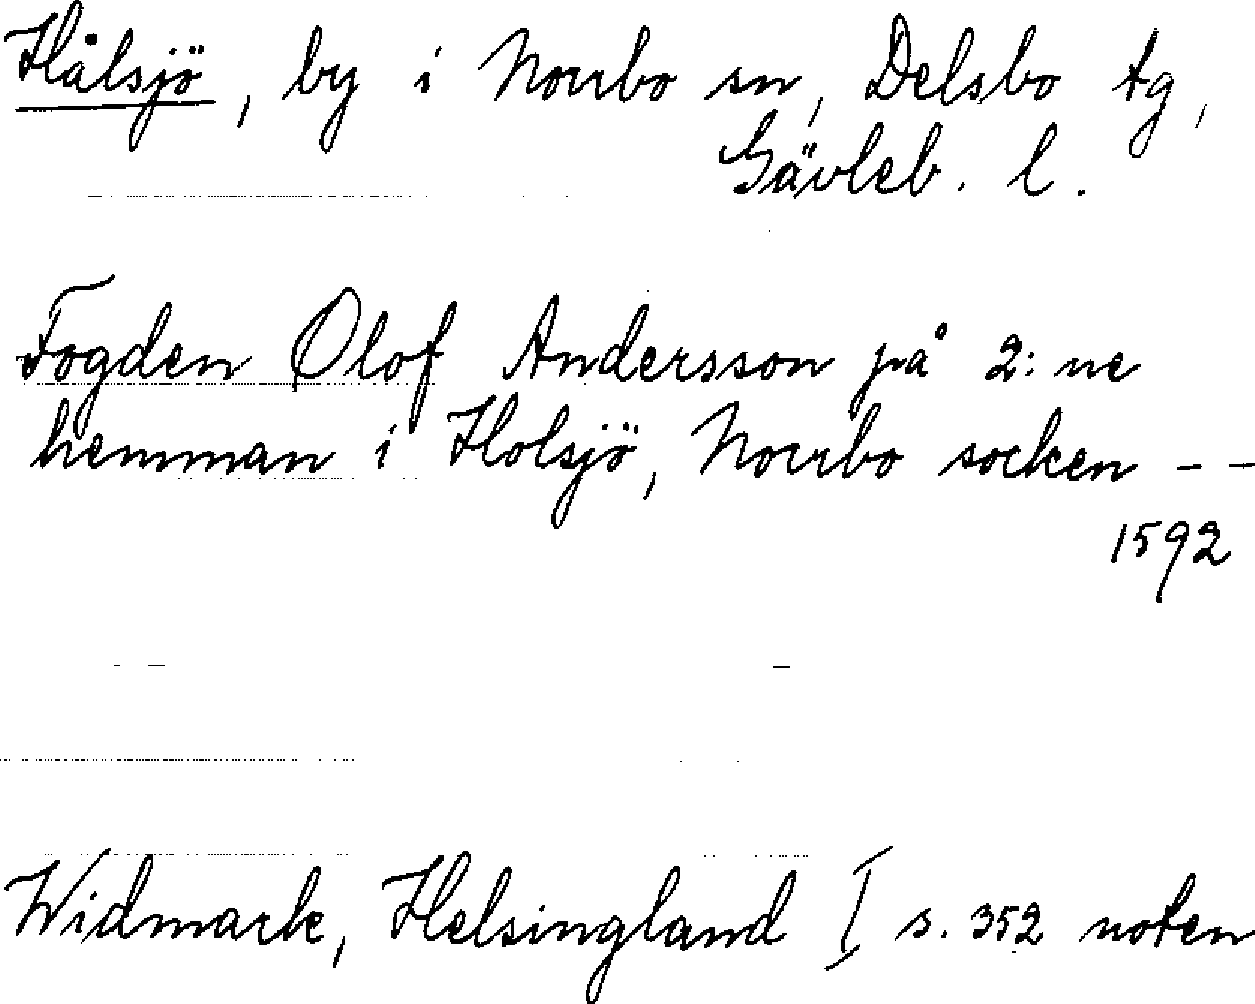 Hålsjö, by i Norrbo sn, Delsbo tg,
Gävleb. l.
Fogden Olof Andersson på 2:ne
hemman i Holsjö, Norrbo socken - -
1592
Widmark, Helsingland I s. 352 noten